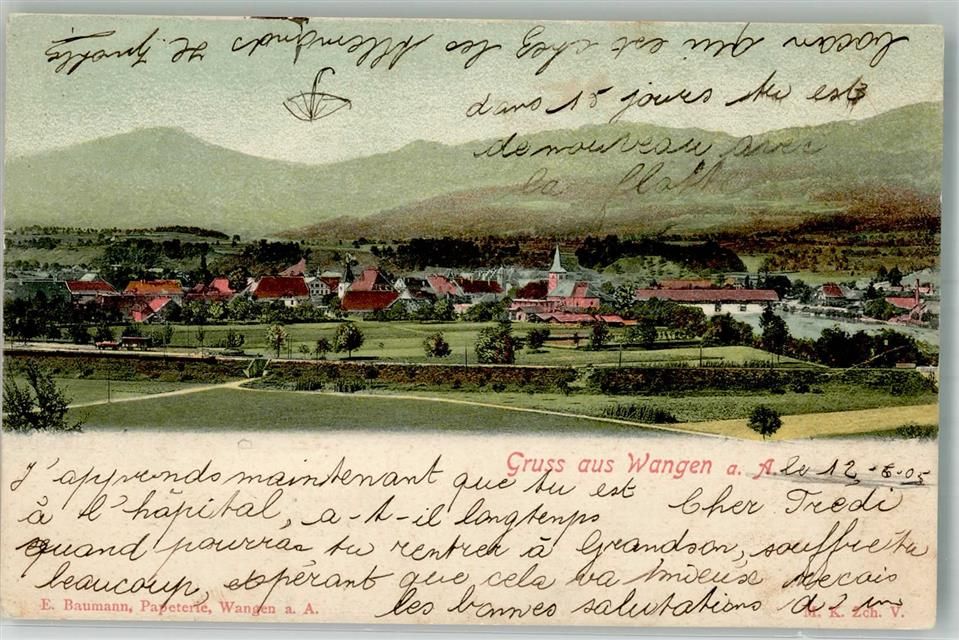 Gruss aus Wangen a. A.
le 12-6-05
Cher Fredi
J'apprends maintenant que tu est
à l'hâpital, a-t-il longtenps
quand pourras tu rentrer à Grandson, souffre tu
beaucoup, espérant que cela va mieux reçois
les bonnes salutations d'un
bocan qui est chez les Allemands H.
dans 15 jours tu est
de nouveau avec
la
E. Baumann, Papeterie, Wangen a. A.
M. K. Zch. V.